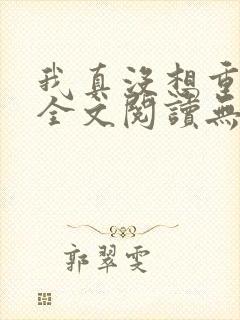 我真没想重
全文閱讀無
郭翠雯